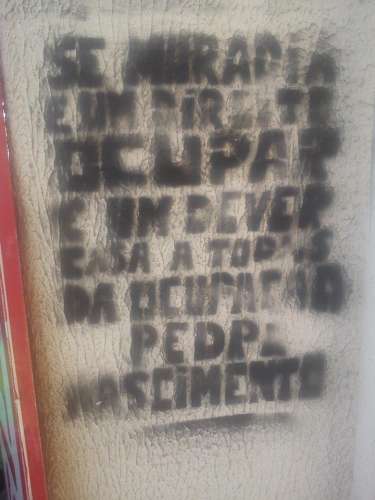 SE MURADIA
E UM DIREITO
OCUPAR
E UM DEVER
CASA A TODOS
DA OCUPACAO
PEDRO
NASCIMENTO